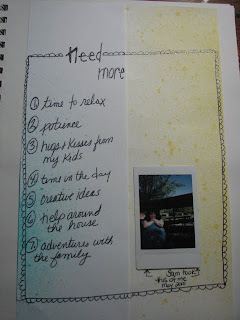 need
more
① time to relax
② patience
③ hugs + kisses from
my kids
④ time in the day
⑤ creative ideas
⑥ help around
the house
⑦ adventures with
the family
Sam took
this of me
may 2010